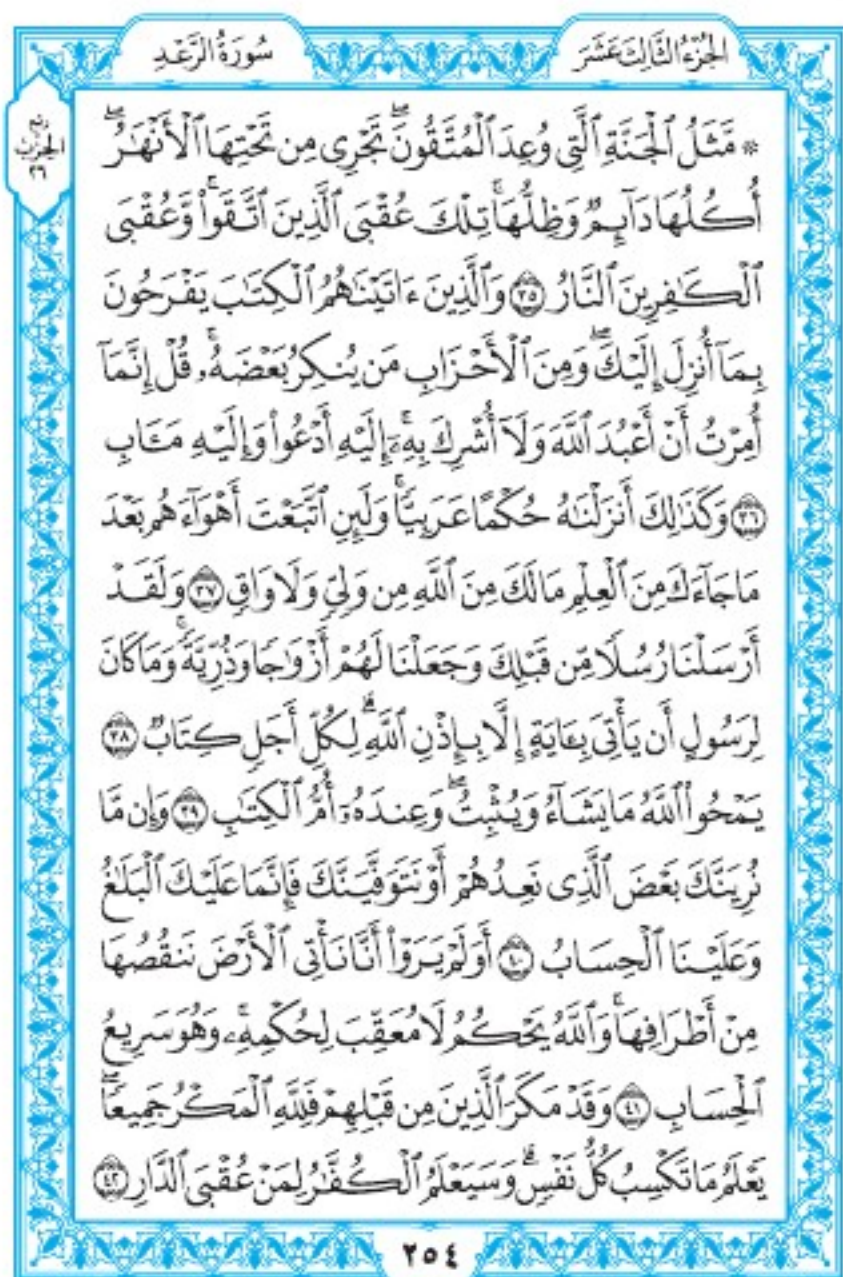 سُورَةُ الرَّعْدِ
الجُزْءُ الثَّالِثَ عَشَرَ
ربع
الحزب
٢٦
۞ مَّثَلُ ٱلْجَنَّةِ ٱلَّتِي وُعِدَ ٱلْمُتَّقُونَۖ تَجْرِي مِن تَحْتِهَا ٱلْأَنْهَٰرُۖ
أُكُلُهَا دَآئِمٞ وَظِلُّهَاۚ تِلْكَ عُقْبَى ٱلَّذِينَ ٱتَّقَواْۚ وَّعُقْبَى
ٱلْكَٰفِرِينَ ٱلنَّارُ ۝٣٥ وَٱلَّذِينَ ءَاتَيْنَٰهُمُ ٱلْكِتَٰبَ يَفْرَحُونَ
بِمَآ أُنزِلَ إِلَيْكَۖ وَمِنَ ٱلْأَحْزَابِ مَن يُنكِرُ بَعْضَهُۥۚ قُلْ إِنَّمَآ
أُمِرْتُ أَنْ أَعْبُدَ ٱللَّهَ وَلَآ أُشْرِكَ بِهِۦٓۚ إِلَيْهِ أَدْعُواْ وَإِلَيْهِ مَـَٔابِ
۝٣٦ وَكَذَٰلِكَ أَنزَلْنَٰهُ حُكْمًا عَرَبِيّٗاۚ وَلَئِنِ ٱتَّبَعْتَ أَهْوَآءَهُم بَعْدَ
مَا جَآءَكَ مِنَ ٱلْعِلْمِ مَا لَكَ مِنَ ٱللَّهِ مِن وَلِيّٖ وَلَا وَاقٖ ۝٣٧ وَلَقَدْ
أَرْسَلْنَا رُسُلٗا مِّن قَبْلِكَ وَجَعَلْنَا لَهُمْ أَزْوَٰجٗا وَذُرِّيَّةٗۚ وَمَا كَانَ
لِرَسُولٍ أَن يَأْتِيَ بِـَٔايَةٍ إِلَّا بِإِذْنِ ٱللَّهِۗ لِكُلِّ أَجَلٖ كِتَابٞ ۝٣٨
يَمْحُواْ ٱللَّهُ مَا يَشَآءُ وَيُثْبِتُۖ وَعِندَهُۥٓ أُمُّ ٱلْكِتَٰبِ ۝٣٩ وَإِن مَّا
نُرِيَنَّكَ بَعْضَ ٱلَّذِي نَعِدُهُمْ أَوْ نَتَوَفَّيَنَّكَ فَإِنَّمَا عَلَيْكَ ٱلْبَلَٰغُ
وَعَلَيْنَا ٱلْحِسَابُ ۝٤٠ أَوَلَمْ يَرَوْاْ أَنَّا نَأْتِي ٱلْأَرْضَ نَنقُصُهَا
مِنْ أَطْرَافِهَاۚ وَٱللَّهُ يَحْكُمُ لَا مُعَقِّبَ لِحُكْمِهِۦۚ وَهُوَ سَرِيعُ
ٱلْحِسَابِ ۝٤١ وَقَدْ مَكَرَ ٱلَّذِينَ مِن قَبْلِهِمْ فَلِلَّهِ ٱلْمَكْرُ جَمِيعٗاۖ
يَعْلَمُ مَا تَكْسِبُ كُلُّ نَفْسٖۗ وَسَيَعْلَمُ ٱلْكُفَّٰرُ لِمَنْ عُقْبَى ٱلدَّارِ ۝٤٢
٢٥٤